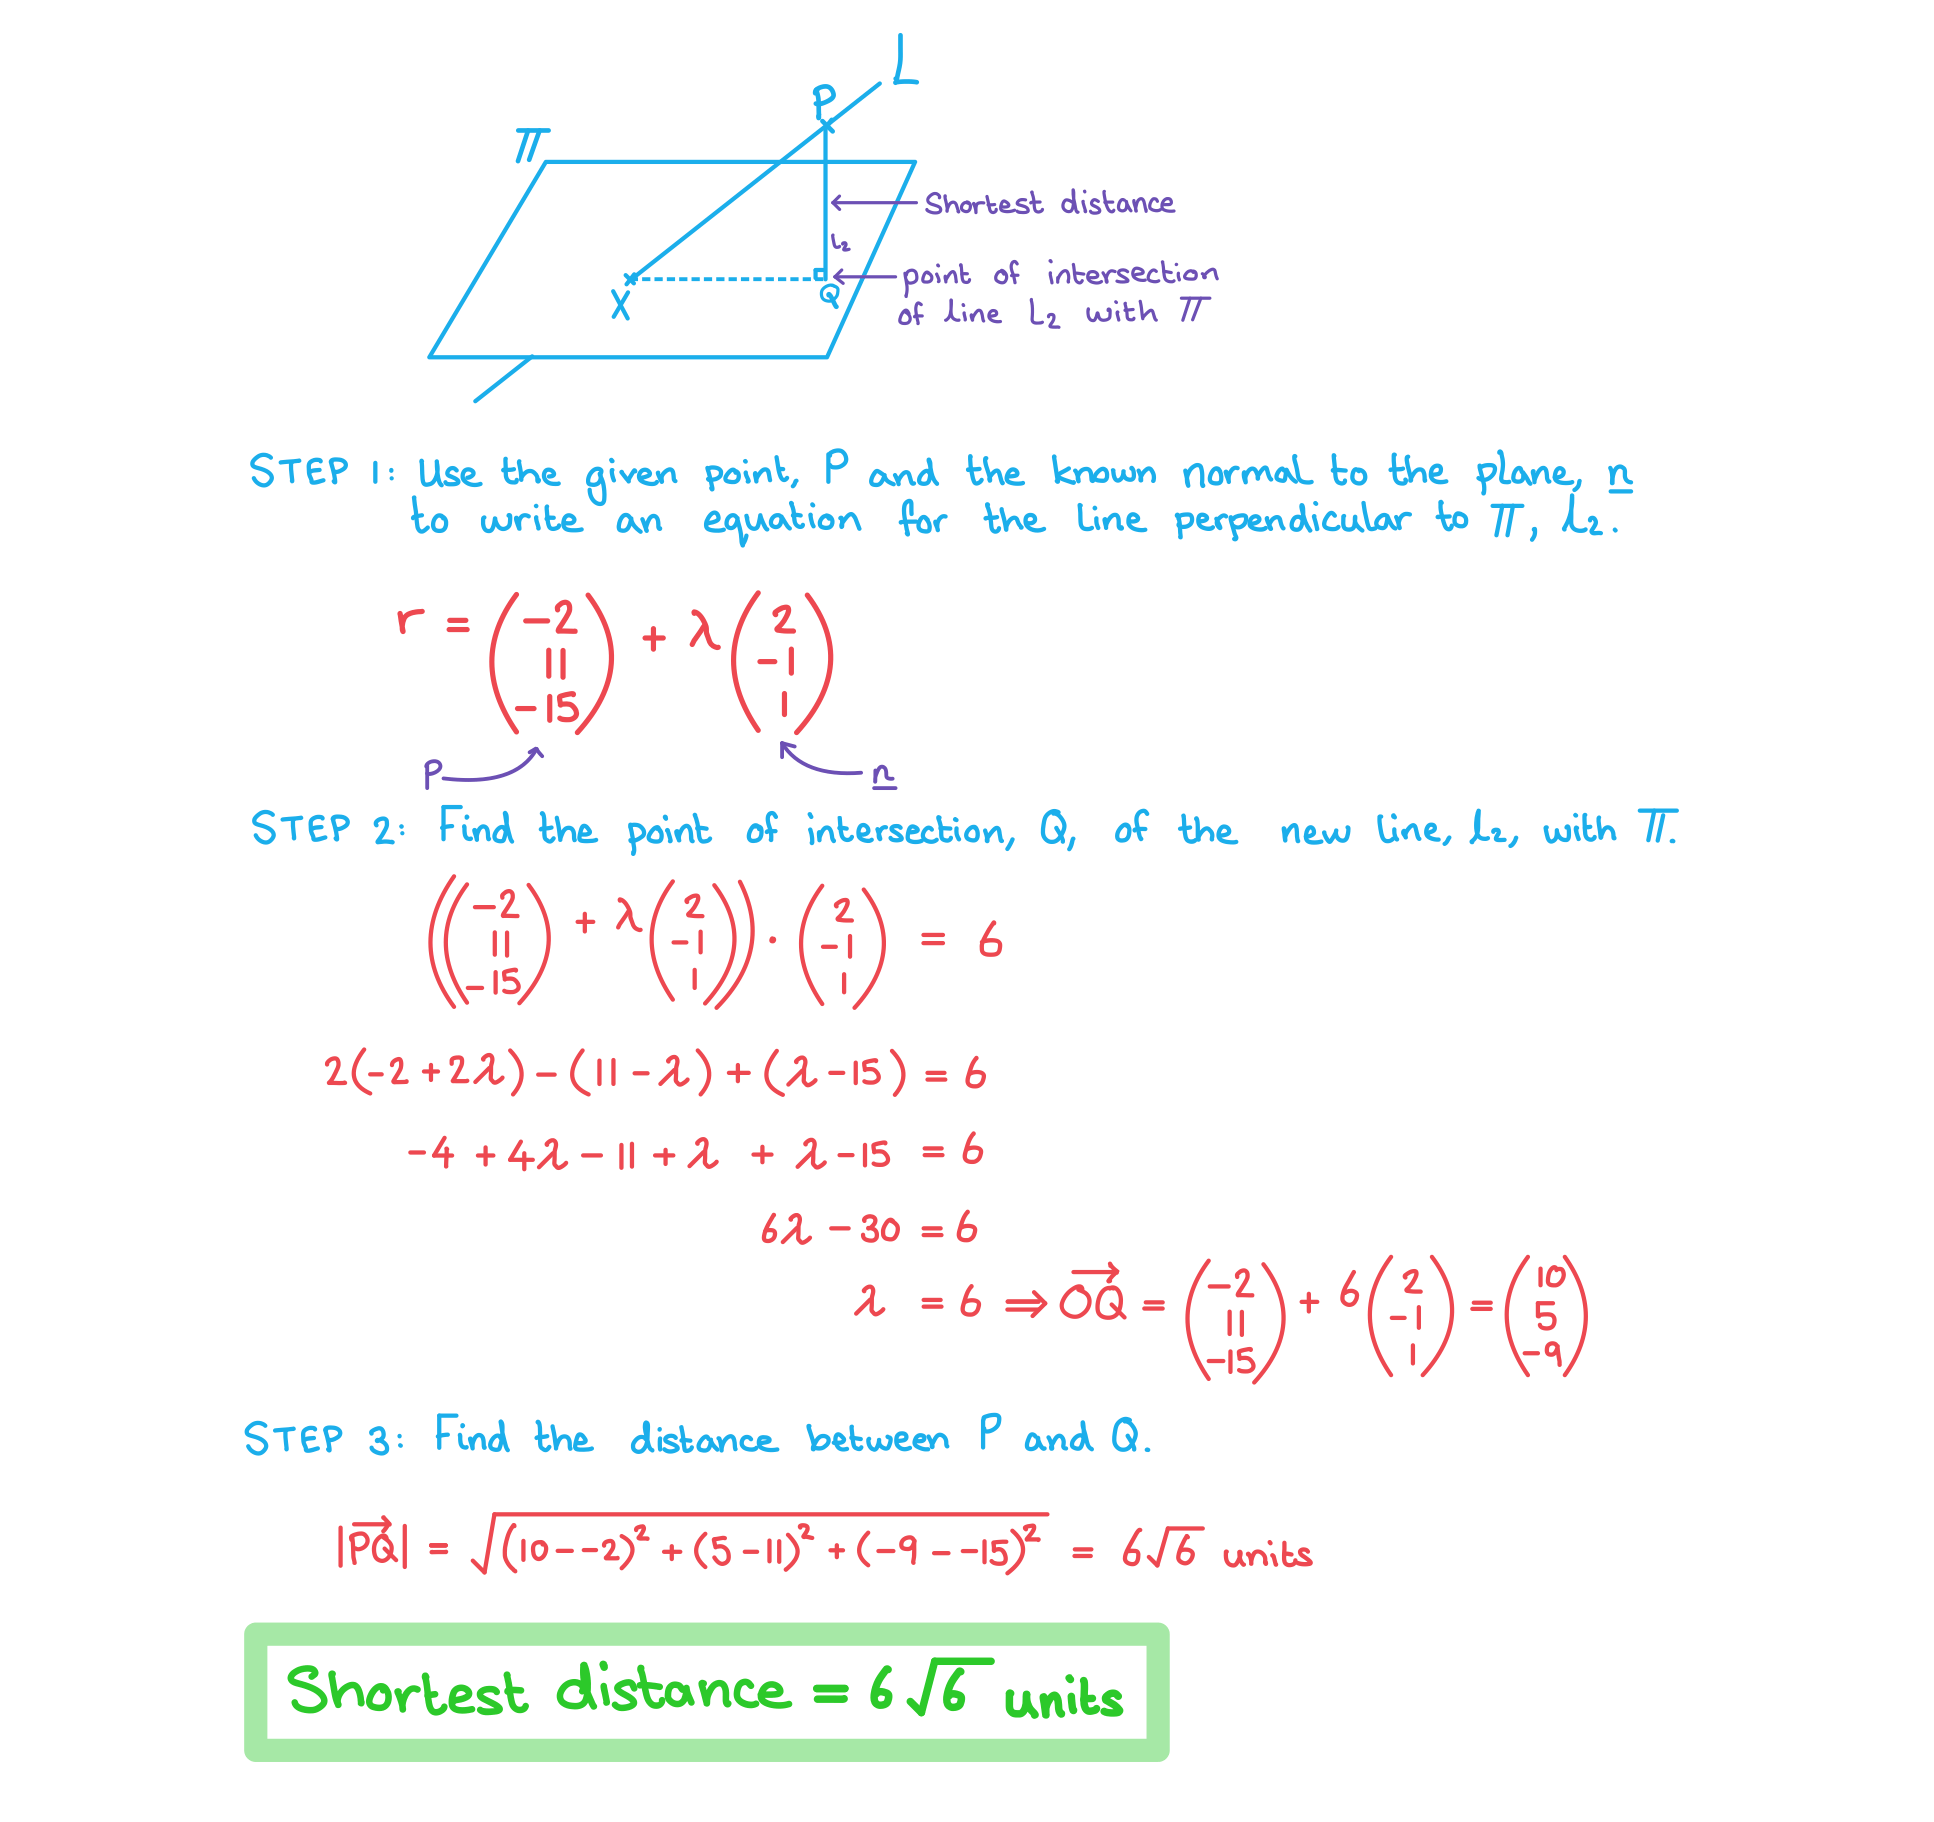 L
P
π
Shortest distance
L₂
point of itersection
of line L₂ with π
X
Q
STEP 1: Use the given point, P and the known normal to the plane, n
to write an equation for the line perpendicular to π, L₂.
r = (-2 11 -15) + λ (2 -1 1)
P n
STEP 2: Find the point of intersection, Q, of the new line, L₂, with π.
((-2 11 -15) + λ (2 -1 1)) · (2 -1 1) = 6
2(-2+2λ) - (11-λ) + (λ-15) = 6
-4 + 4λ - 11 + λ + λ - 15 = 6
6λ - 30 = 6
λ = 6 ⇒ OQ = (-2 11 -15) + 6 (2 -1 1) = (10 5 -9)
STEP 3: Find the distance between P and Q.
|PQ| = √((10--2)² + (5-11)² + (-9--15)²) = 6√6 units
Shortest distance = 6√6 units